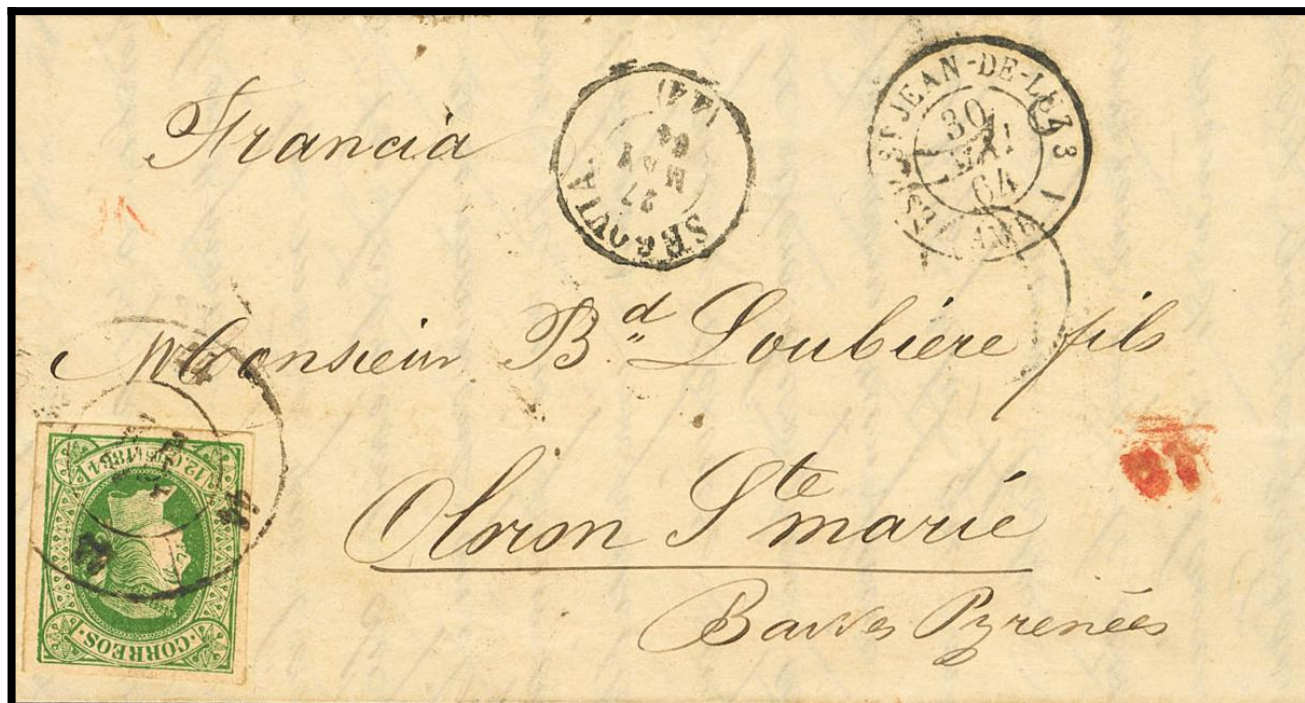 Francia
SEGOVIA
27
MAY
64
(44)
ST JEAN-DE-LUZ 3
30
MAI
64
Monsieur Bd Loubière fils
Oloron Ste marie
Basses Pyrenées
12 Cos 1864
CORREOS